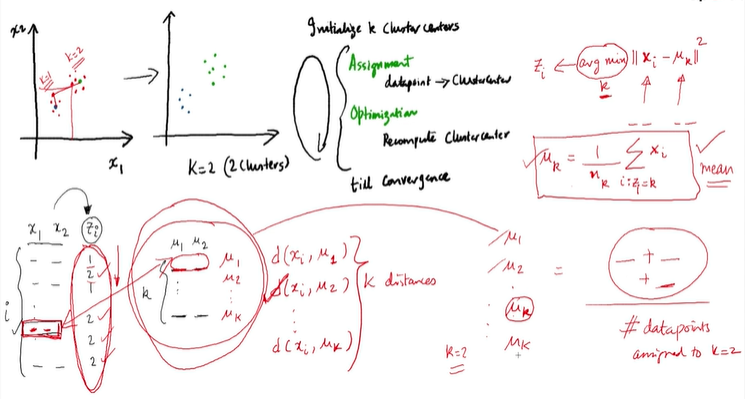 x2
k=1
k=2
x1
K=2 (2 Clusters)
Initialize k Cluster centers
Assignment
datapoint → Clustercenter
Optimization
Recompute Clustercenter
till Convergence
z_i ← arg min_k ||x_i - μ_k||²
μ_k = 1/n_k Σ_{i:z_i=k} x_i
mean
x1 x2 z_i
1
2
1
i
2
2
2
μ1 μ2
μ1
μ2
⋮
k
μK
d(x_i, μ1)
d(x_i, μ2)
⋮
d(x_i, μK)
K distances
μ1
μ2
⋮
μk
⋮
μK
k=2
= — + — + —
# datapoints
assigned to k=2